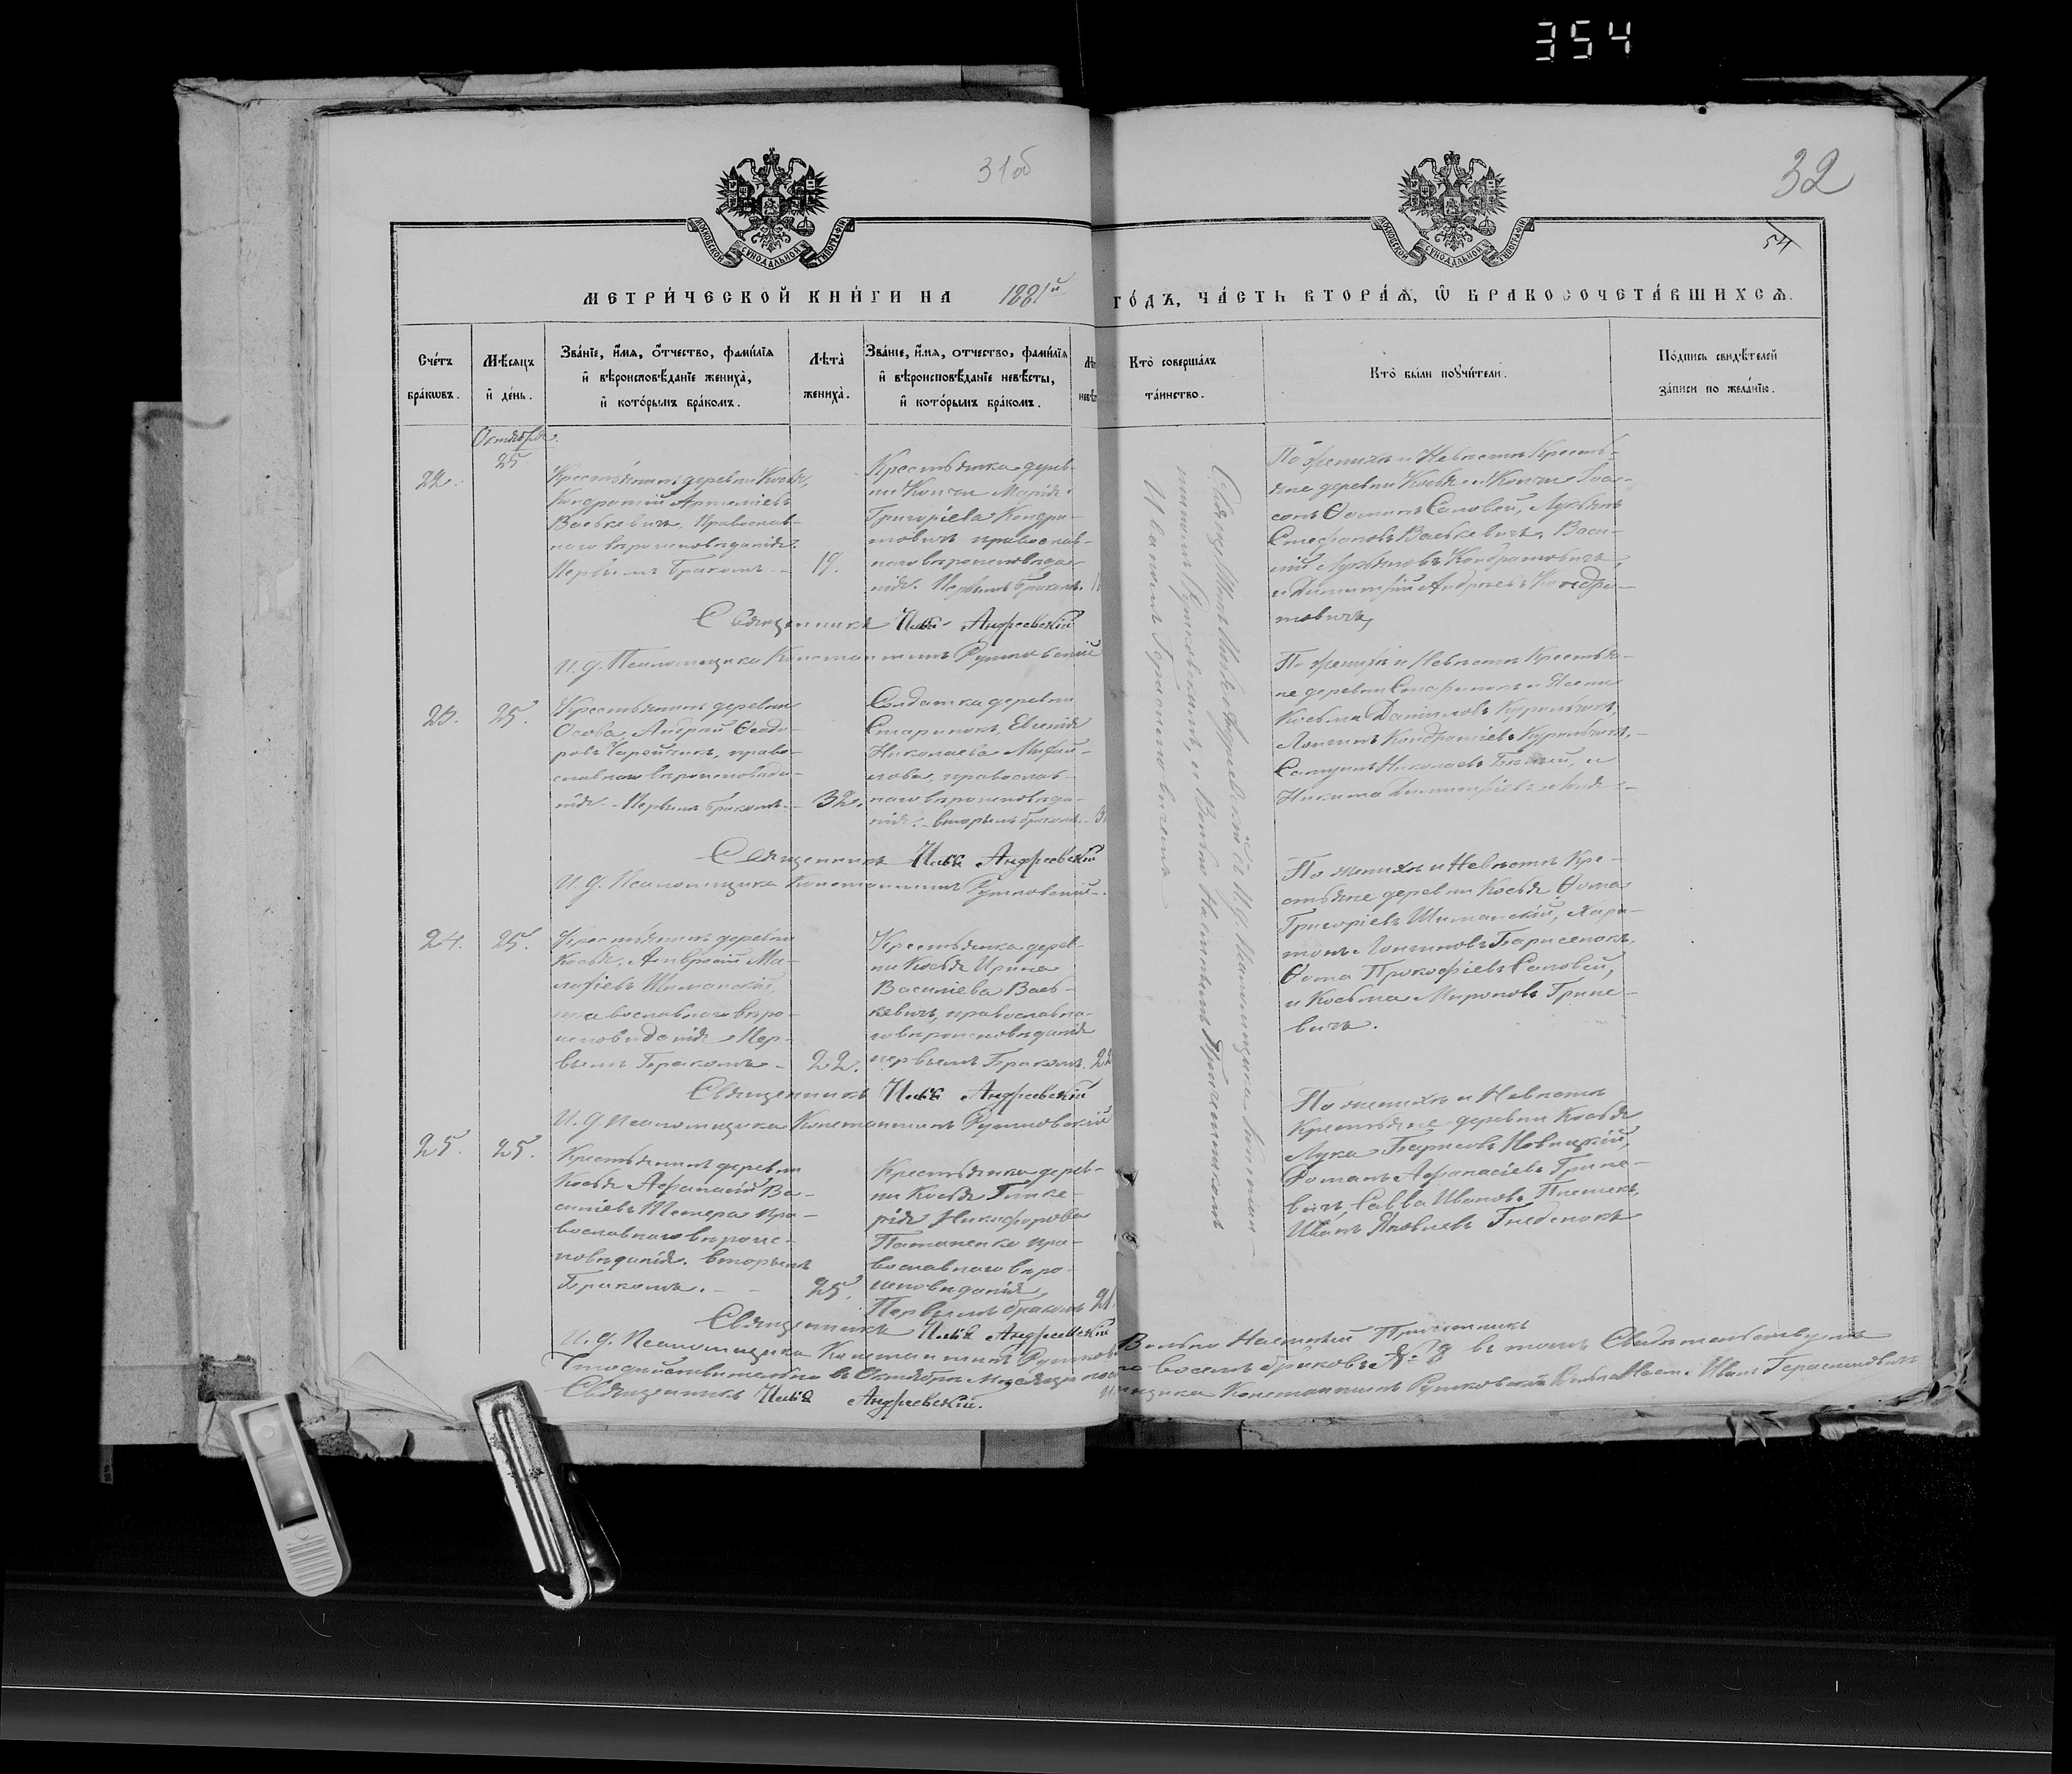 354
31об
32
54
МЕТРИ́ЧЕСКОЙ КНИ́ГИ НА 1881й ГО́ДЪ, ЧА́СТЬ ВТОРА́Ѧ, Ѿ БРАКОСОЧЕТА́ВШИХСѦ.
Сче́тъ бра́кѡвъ.
Мѣ́сяцъ и҆ де́нь.
Зва́нїе, и҆́мя, ѻ҆́тчество, фамилїя
и҆ вѣроисповѣ́данїе жениха̀,
и҆ кото́рымъ бра́комъ.
Лѣта̀
жениха̀.
Зва́нїе, и҆́мя, отчество, фамилїя
и҆ вѣроисповѣ́данїе невѣ́сты,
и҆ кото́рымъ бра́комъ.
Кто̀ соверша́лъ
та́инство.
Кто̀ бы́ли пор꙳чи́тели.
По́дпись свидѣ́телей
за́писи по жела́нїю.
Октября.
22.
25
Крестьянинъ деревни Косья,
Кондратій Артеміевъ
Васькевичъ, православ-
наго вѣроисповѣданія.
Первымъ бракомъ -
19.
Крестьянка дерев-
ни Кончи Марія
Григоріева Кондра-
товичъ православ-
наго вѣроисповѣда-
нія. Первымъ бракомъ.
По женихѣ и Невѣстѣ Кресть-
яне деревни Косья и Кончи
Ѳоминъ Саловей, Лукьянъ
Стефановъ Васькевичъ, Васи-
лій Лукьяновъ Кондратовичъ,
и Димитрій Андреевъ Кондра-
товичъ,
Священникъ Илья Андреевскій
И. д. Псаломщика Константинъ Рутковскій
23.
25.
Крестьянинъ деревни
Осова, Андрей Ѳеодо-
ровъ православнаго вѣроисповѣда-
нія. - Первымъ бракомъ. -
32.
Солдатка деревни
Старинокъ, Евгенія
Николаева
православ-
наго вѣроисповѣда-
нія. - вторымъ бракомъ. -
По женихѣ и Невѣстѣ Крестья-
не деревни Старинокъ и
Косьма Даниловъ
Лонгинъ Кондратіевъ
Николаевъ и
Никита Димитріевъ
Священникъ Илья Андреевскій
И. д. Псаломщика Константинъ Рутковскій -
24.
25.
Крестьянинъ деревни
Косья, Амвросій Ма-
лафіевъ Шиманскій,
православнаго вѣро-
исповѣданія Пер-
вымъ Бракомъ -
22.
Крестьянка дерев-
ни Косья Ирина
Василіева Вась-
кевичъ, православна-
го вѣроисповѣданія
первымъ Бракомъ. 22
По женихѣ и Невѣстѣ Кре-
стьяне деревни Косья Ѳома
Григоріевъ Шиманскій, Хари-
тонъ Лонгиновъ Барисенокъ,
Ѳома Прокофіевъ Саловей,
и Косьма Мироновъ Грине-
вичъ.
Священникъ Илья Андреевскій
И. д. Псаломщика Константинъ Рутковскій
25.
25.
Крестьянинъ деревни
Косья Афанасій Ва-
силіевъ Шемера пра-
вославнаго вѣроис-
повѣданія. вторымъ
Бракомъ. -
25.
Крестьянка дерев-
ни Косья Глике-
рія Никифорова
Потапенко пра-
вославнаго вѣро-
исповѣданія,
Первымъ бракомъ 21
По женихѣ и Невѣстѣ
Крестьяне деревни Косья
Лука Борисовъ Новицкій,
Романъ Афанасіевъ Грине-
вичъ, Савва Ивановъ
Иванъ Яковлевъ Гнеденокъ
Священникъ Илья Андреевскій
И. д. Псаломщика Константинъ Рутковскій Вольно Наемный Причетникъ
Что дѣйствительно въ Октябрѣ Мѣсяцѣ восемь браковъ № 8 въ томъ Свидѣтельствуемъ
Священникъ Илья Андреевскій. Константинъ Рутковскій Иванъ Герасимовичъ
Священникъ Илья Андреевскій и И. д. Псаломщика Констан-
тинъ Рутковскій, и Вольно Наемнымъ Причетникомъ
Иваномъ Герасимовичемъ